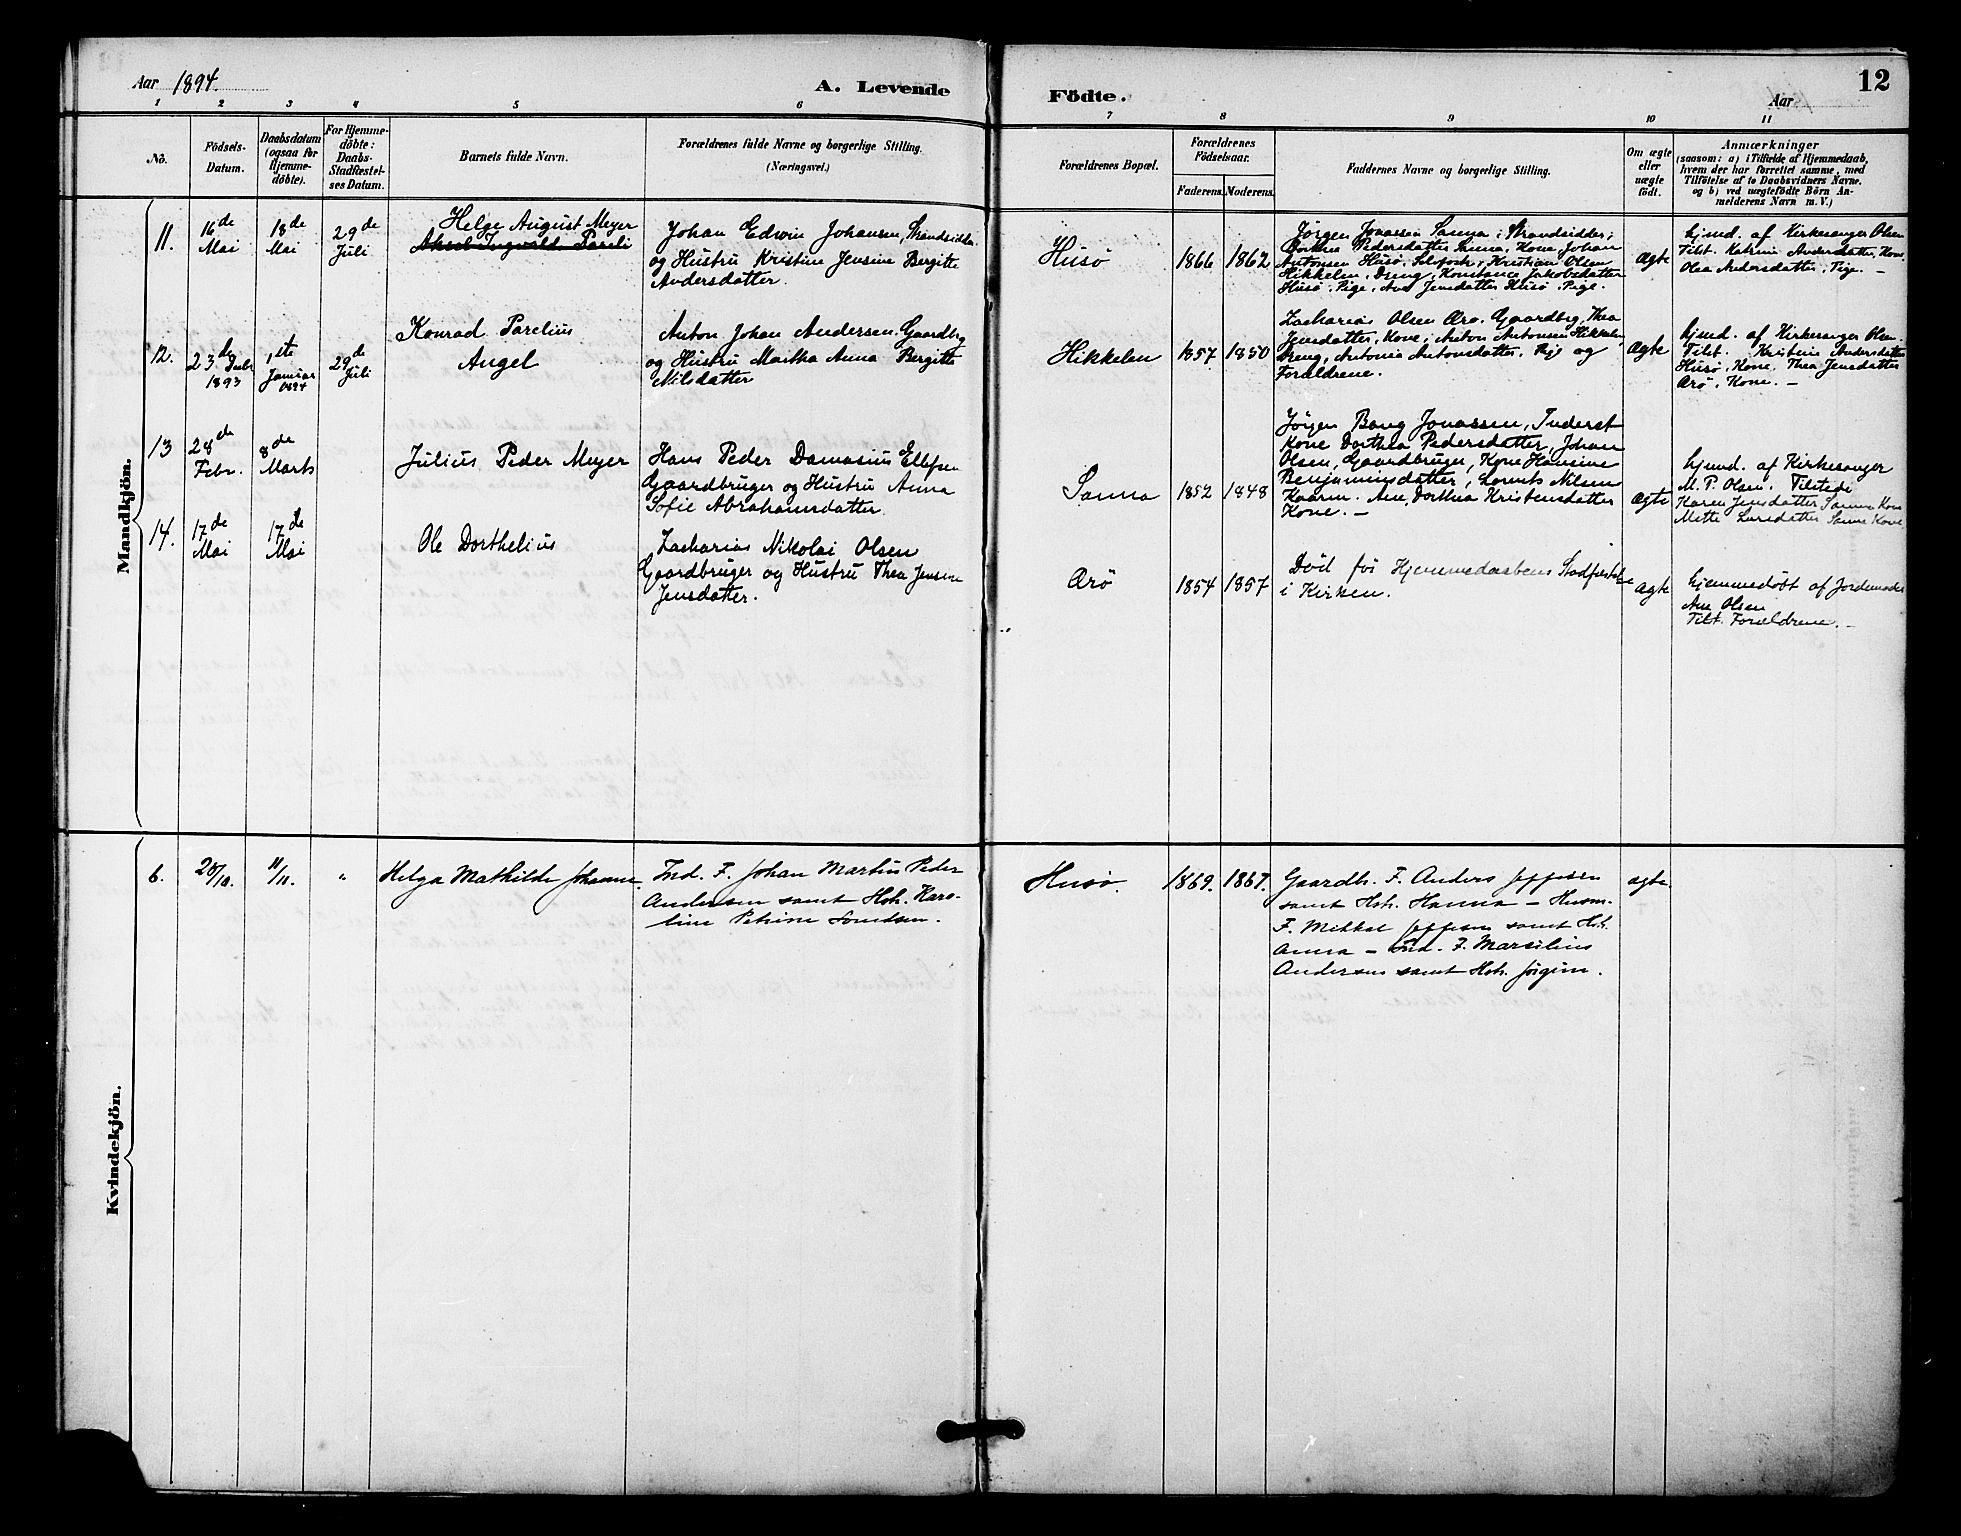 Aar 1894.
A. Levende
Födte.
Aar
12
1 2 3 4 5 6 7 8 9 10 11
No.
Födsels-
Datum.
Daabsdatum
(ogsaa for
Hjemme-
döbte).
For Hjemme-
döbte:
Daabs-
Stadfæstel-
ses Datum.
Barnets fulde Navn.
Forældrenes fulde Navne og borgerlige Stilling.
(Næringsvei.)
Forældrenes Bopæl.
Forældrenes
Födselsaar.
Faderens. Moderens.
Faddernes Navne og borgerlige Stilling.
Om ægte
eller
uægte
født.
Anmærkninger
(saasom: a) i Tilfælde af Hjemmedaab,
hvem der har forrettet samme, med
Tilföielse af to Daabsvidners Navne.
og b) ved uægtefödte Börn An-
melderens Navn m. V.)
Mandkjön.
11.
16de
Mai
18de
Mai
29de
Juli
Helge August Meyer
Johan Edwin Johansen, Strandsidder
og Hustru Kristine Jensine Bergitte
Andersdatter.
Husø
1866
1862
Jørgen Jonassen Sanna, Strandsidder;
Pedersdatter Sanna, Kone, Johan
Antonsen Husø, Selvfosh, Kristian Olsen
Hikkelen, Dreng, Konstance Jakobsdatter
Husø, Pige, Ane Jensdatter Husø, Pige.
ægte
hjmd. af Kirkesanger Olsen
Tilst. Katrine Andersdatter, Kone,
Olea Andersdatter, Pige. -
12.
23de Decbr
1893
1ste
Januar
1894
29de
Juli
Konrad Parelius
Angel
Anton Johan Andersen, Gaardbg
og Hustru Martha Anna Bergitte
Nilsdatter
Hikkelen
1857
1850
Zacharias Olsen Arø, Gaardbg, Thea
Jensdatter, Kone, Anton Antonsen Hikkelen
Dreng, Antonia Antonsdatter, Pige og
Forældrene.
ægte
hjmd. af Kirkesanger Olsen.
Tilst. Kristine Andersdatter
Husø, Kone, Thea Jensdatter
Arø, Kone. -
13
28de
Febr.
8de
Marts
Julius Peder Meyer
Hans Peder Damasius Ellefsen
Gaardbruger og Hustru Anna
Sofie Abrahamsdatter.
Sanna
1852
1848
Jørgen Bang Jonassen, Inderst
Kone Dorthea Pedersdatter, Johan
Olsen, Gaardbruger, Kone Hansine
Benjaminsdatter, Lorents Nilsen
Kaarm. Ane Dorthea Kristensdatter
Kone. -
ægte
hjmd. af Kirkesanger
M. P. Olsen. Tilstede
Karen Jensdatter Sanna Kone
Mette Larsdatter Sanna Kone
14.
17de
Mai
17de
Mai
Ole Dorthelius
Zacharias Nikolai Olsen
Gaardbruger og Hustru Thea Jensine
Jensdatter.
Arø
1854
1857
Død før Hjemmedaabens Stadfæstelse
i Kirken.
ægte
hjemmedøbt af Jordemoder
Ane Olsen
Tilst. Forældrene. -
Kvindekjön.
6.
20/10.
11/11.
"
Helga Mathilde Johanne.
Ind. F. Johan Martin Peder
Andersen samt Hstr. Karo-
line Petrine Lorndsen.
Husø.
1869.
1867.
Gaardb. F. Anders Jeppesen
samt Hstr. Hanna - Husm.
F. Mikkal Jeppesen samt Hstr.
Anna - Ind. F. Marselius
Andersen samt Hstr. Jørgine.
ægte.